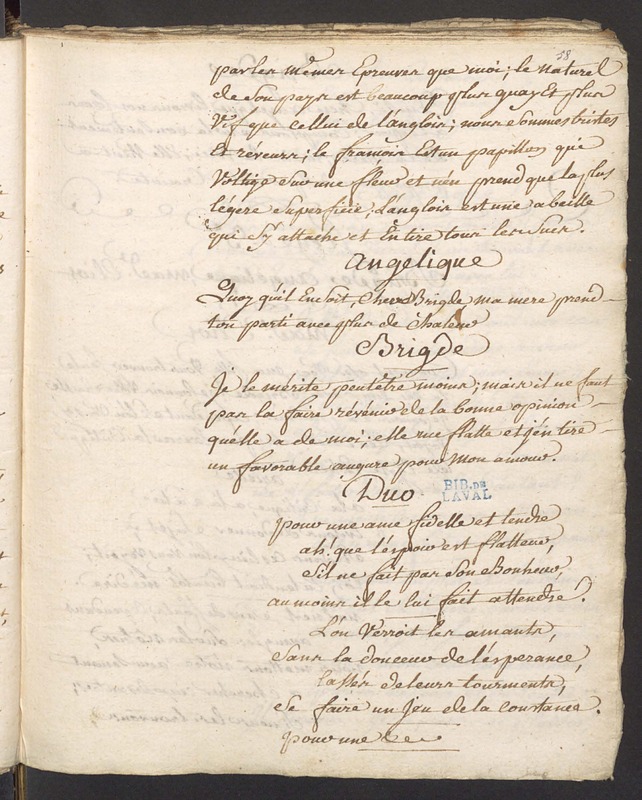 58
par les mêmes Epreuves que moi; le naturel
de son pays est beaucoup plus guay Et plus
Vif que cellui de l'anglois; nous sommes tristes
Et rêveurs; le francois Est un papillon qui
Voltige sur une fleur et n'en prend que la plus
légere superficie; L'anglois est une abeille
qui s'y attache et En tire tous les sucs.
Angelique
Quoy qu'il En soit, Chere Brigde ma mere prend
ton parti avec plus de chaleur
Brigde
Je le mérite peutêtre moins; mais il ne faut
pas la faire révénir de la bonne opinion
qu'elle a de moi; elle me flatte et j'en tire
un favorable augure pour mon amour.
Duo.
BIB. DE
LAVAL
pour une ame fidelle et tendre
ah! que l'éspoir est flatteur,
S'il ne fait pas son Bonheur,
au moins il le lui fait attendre?
L'on Verroit les amants,
Sans la douceur de l'ésperance,
lassés de leurs tourments,
Se faire un Jeu de la constance.
pour une &c